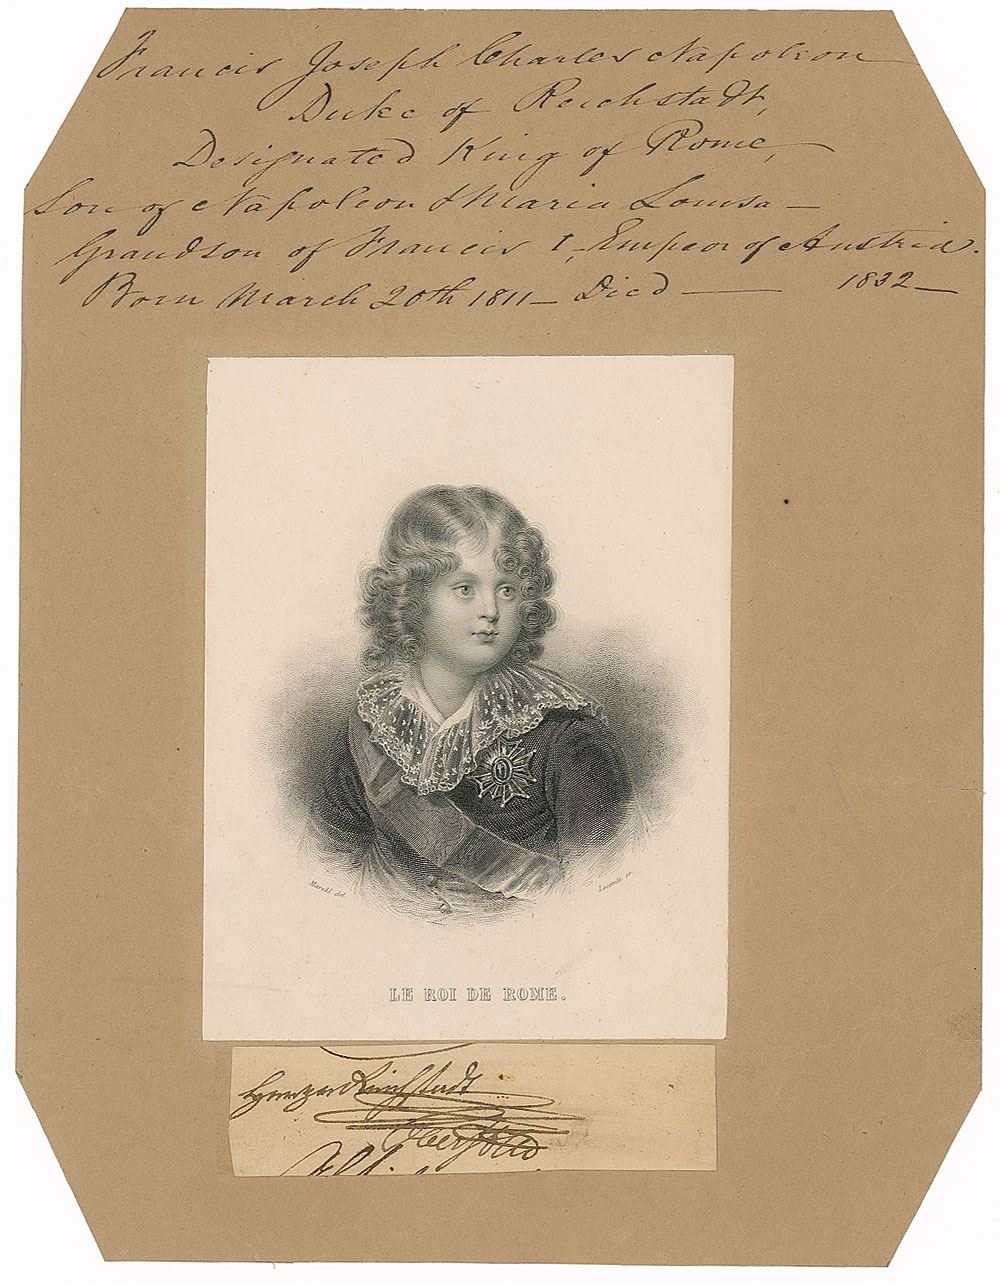 Francis Joseph Charles Napoleon
Duke of Reichstadt,
Designated King of Rome,
Son of Napoleon & Maria Louisa —
Grandson of Francis I, Emperor of Austria.
Born March 20th 1811 — Died —— 1832 —
Marchl del.
Lecomte sc.
LE ROI DE ROME.
Herzog Reichstadt